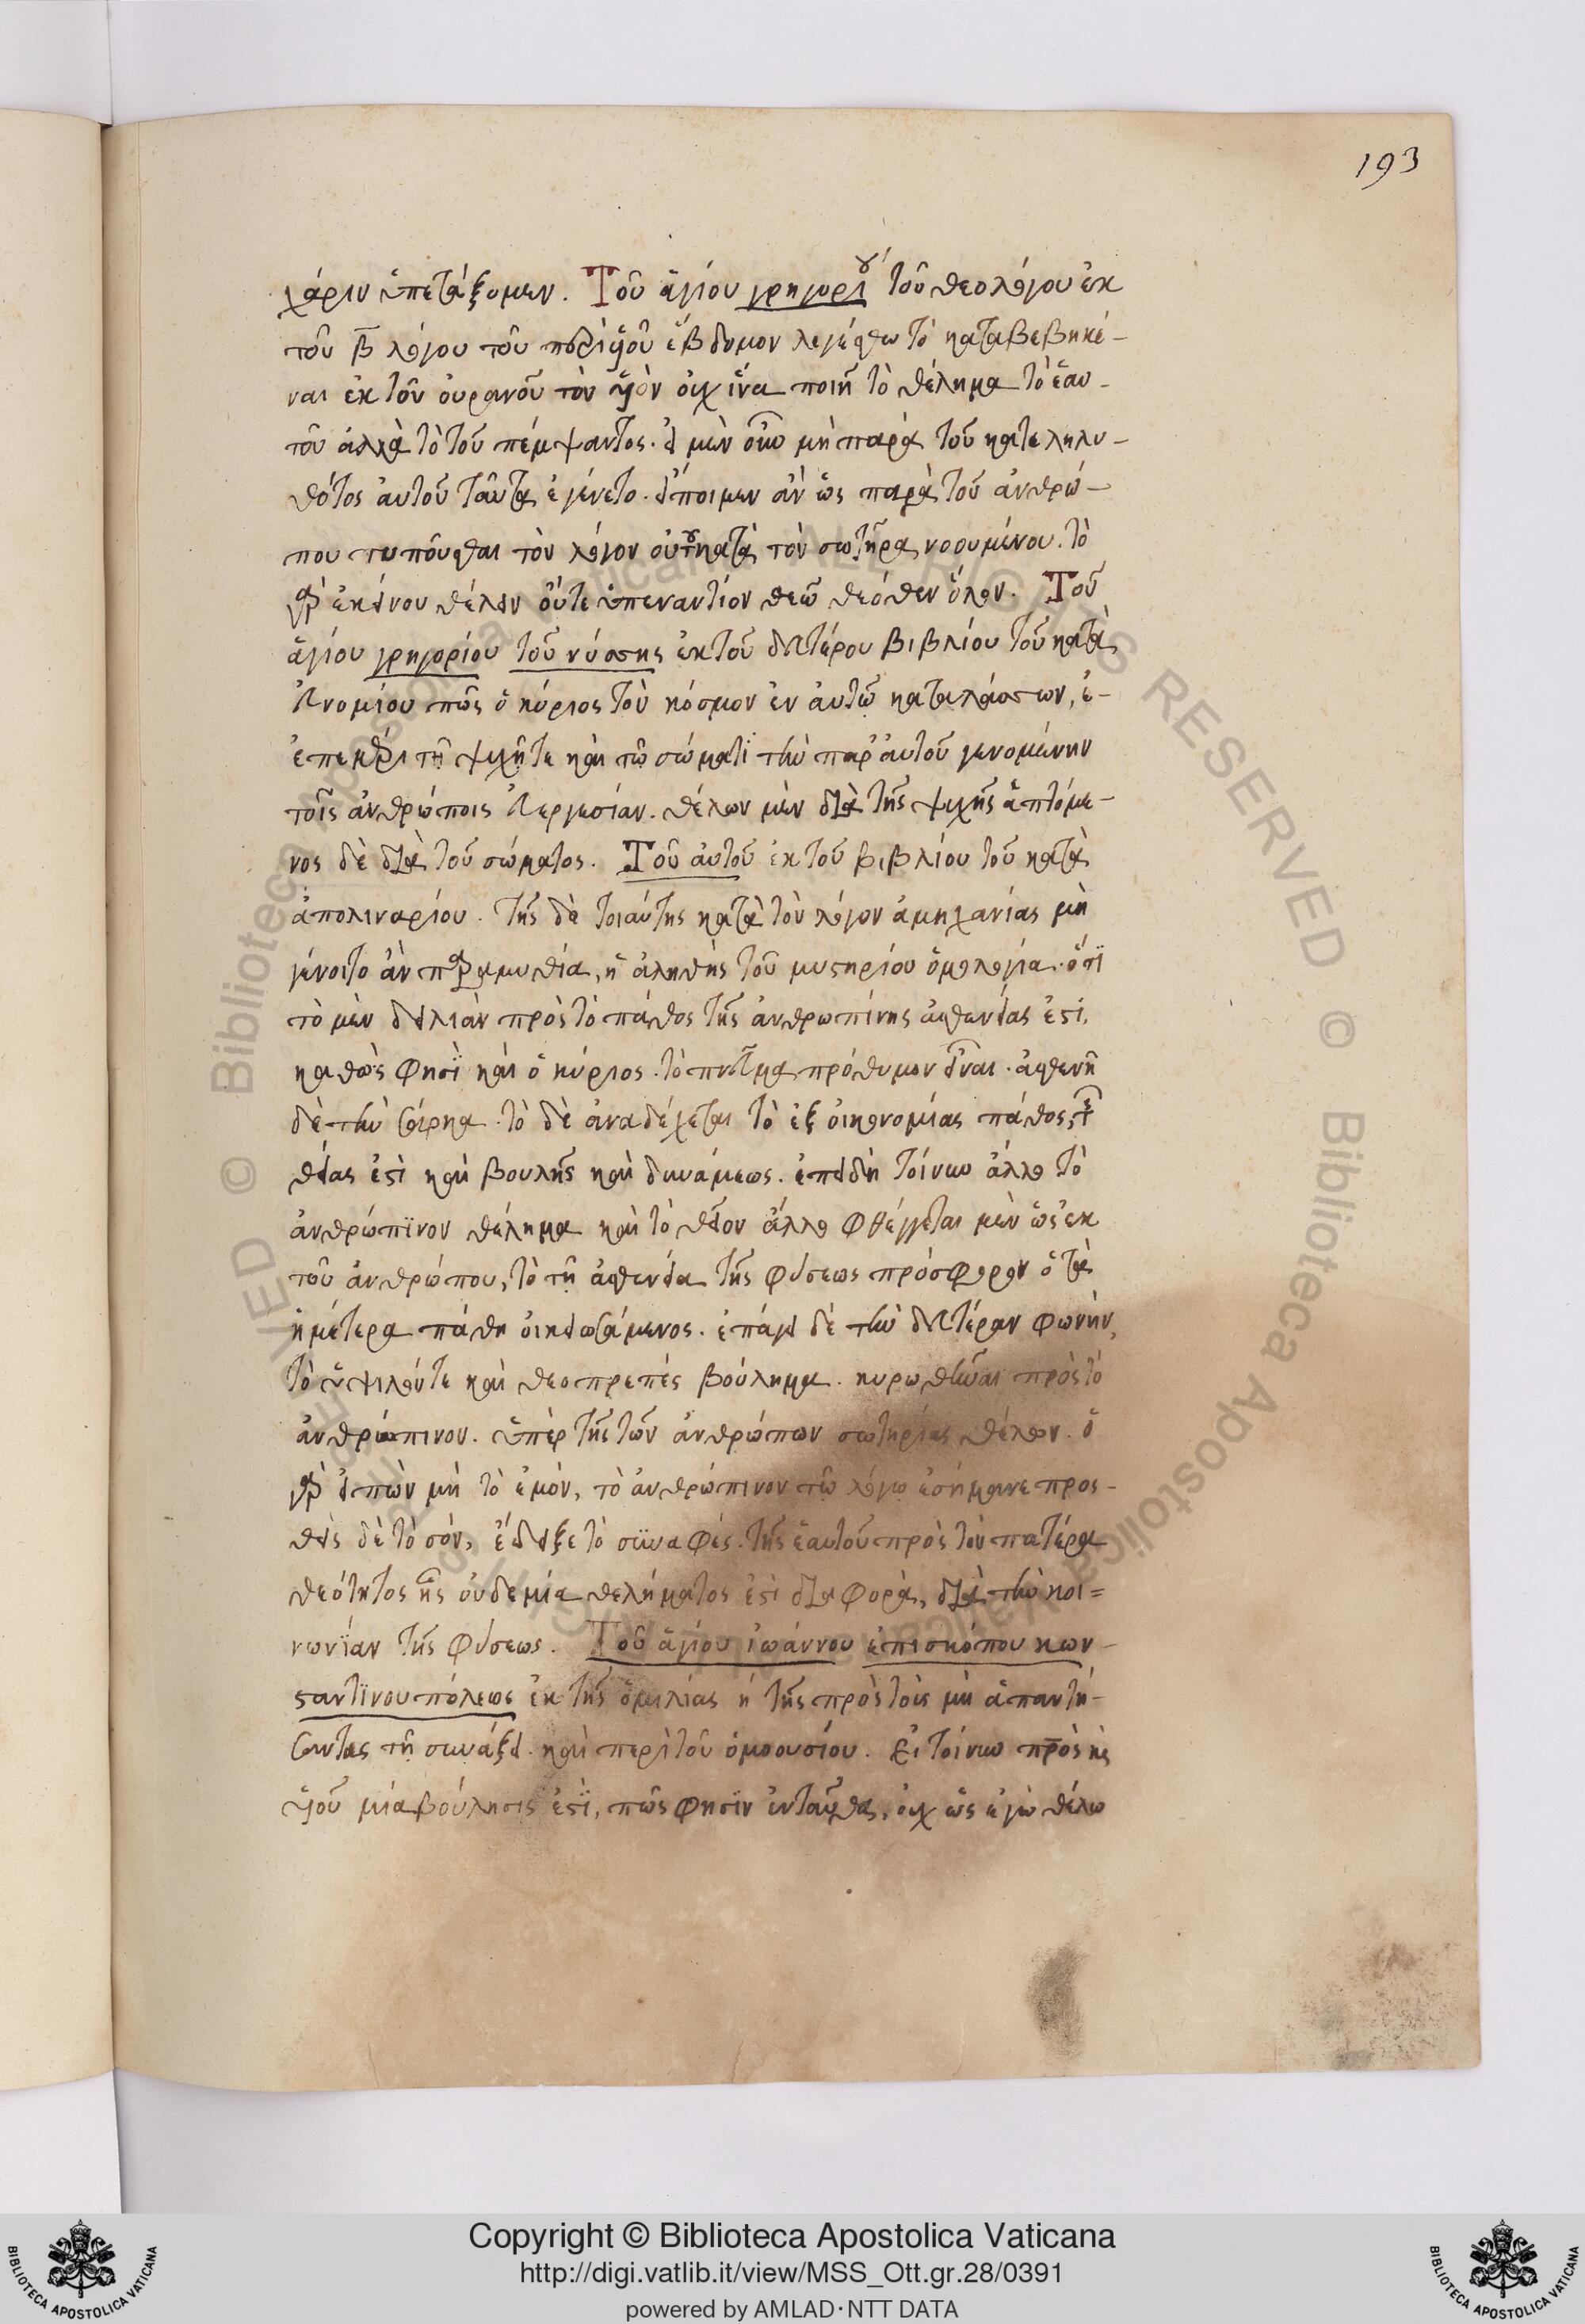 193
χάριν ὑπετάξαμεν. Τοῦ ἁγίου γρηγορίου τοῦ θεολόγου ἐκ
τοῦ β λόγου τοῦ περὶ ὑιοῦ ἕβδομον λεγέσθω τὸ καταβεβηκέ-
ναι ἐκ τοῦ ὀυρανοῦ τὸν ὑιὸν ὀυχ ἵνα ποιῆ τὸ θέλημα τὸ ἑαυ-
τοῦ ἀλλὰ τὸ τοῦ πέμψαντος. εἰ μὲν οὖν μὴ παρὰ τοῦ κατεληλυ-
θότος ἀυτοῦ ταῦτα ἐγένετο. εἴποιμεν ἂν ὡς παρὰ τοῦ ἀνθρώ-
που τυποῦσθαι τὸν λόγον οὐ τοῦ κατὰ τὸν σωτῆρα νοουμένου. τὸ
γὰρ ἐκείνου θέλειν ὄυτε ὑπεναντίον θεῶ θεόθεν ὅλον. Τοῦ
ἁγίου γρηγορίου τοῦ νύσσης ἐκ τοῦ δευτέρου βιβλίου τοῦ κατὰ
ἐυνομίου πῶς ὁ κύριος τὸν κόσμον ἐν ἀυτῶ καταλάσσων, ἐ-
ἐπεμέρι τῆ ψυχῆ τε καὶ τῶ σώματι τὴν παρ ἀυτοῦ γενομένην
τοῖς ἀνθρώποις ἐυεργεσίαν. θέλων μὲν διὰ τῆς ψυχῆς ἁπτόμε-
νος δὲ διὰ τοῦ σώματος. Τοῦ ἀυτοῦ ἐκ τοῦ βιβλίου τοῦ κατὰ
ἀπολιναρίου. τῆς δὲ τοιάυτης κατὰ τὸν λόγον ἀμηχανίας μὴ
γένοιτο ἂν παραμυθία, ἡ ἀληθὴς τοῦ μυστηρίου ὁμολογία. ὅτι
τὸ μὲν δειλιὰν πρὸς τὸ πάθος τῆς ἀνθρωπίνης ἀσθενείας ἐστί.
καθὼς φησὶ καὶ ὁ κύριος. τὸ πνεῦμα πρόθυμον εἶναι. ἀσθενῆ
δὲ τὴν σάρκα. τὸ δὲ ἀναδέχεται τὸ ἐξ ὀικονομίας πάθος, τῆς
θείας ἐστὶ καὶ βουλῆς καὶ δυνάμεως. ἐπειδὴ τοίνυν ἄλλο τὸ
ἀνθρώπινον θέλημα καὶ τὸ θεῖον ἄλλο φθέγγεται μὲν ὡς ἐκ
τοῦ ἀνθρώπου, τὸ τῆ ἀσθενεία τῆς φύσεως πρόσφορον ὁ τὰ
ἡμέτερα πάθη ὀικειωσάμενος. ἐπάγει δὲ τὴν δευτέραν φωνὴν,
τὸ ὑψιλόν τε καὶ θεοπρεπές βούλημα. κυρωθῆναι πρὸς τὸ
ἀνθρώπινον. ὑπὲρ τῆς τῶν ἀνθρώπων σωτηρίας θέλων. ὁ
γὰρ εἰπὼν μὴ τὸ ἐμόν, τὸ ἀνθρώπινον τῶ λόγω ἐσήμαινε προς-
θεὶς δὲ τὸ σόν, ἔδειξε τὸ συναφές. τῆς ἑαυτοῦ πρὸς τὸν πατέρα
θεότητος ἧς ὀυδεμία θελήματος ἐστὶ διαφορὰ, διὰ τὴν κοι=
νωνίαν τῆς φύσεως. Τοῦ ἁγίου ἰωάννου ἐπισκόπου κων-
σταντίνουπόλεως ἐκ τῆς ὁμιλίας ἡ τῆς πρὸς τοὺς μὴ ἀπαντή-
σαντας τῆ συνάξει. καὶ περὶ τοῦ ὁμοουσίου. Εἰ τοίνυν πρὸς κς
ὑιοῦ μία βούλησις ἐστὶ, πῶς φησὶν ἐνταῦθα, ὀυχ ὡς ἐγὼ θέλω
Copyright © Biblioteca Apostolica Vaticana
http://digi.vatlib.it/view/MSS_Ott.gr.28/0391
powered by AMLAD·NTT DATA